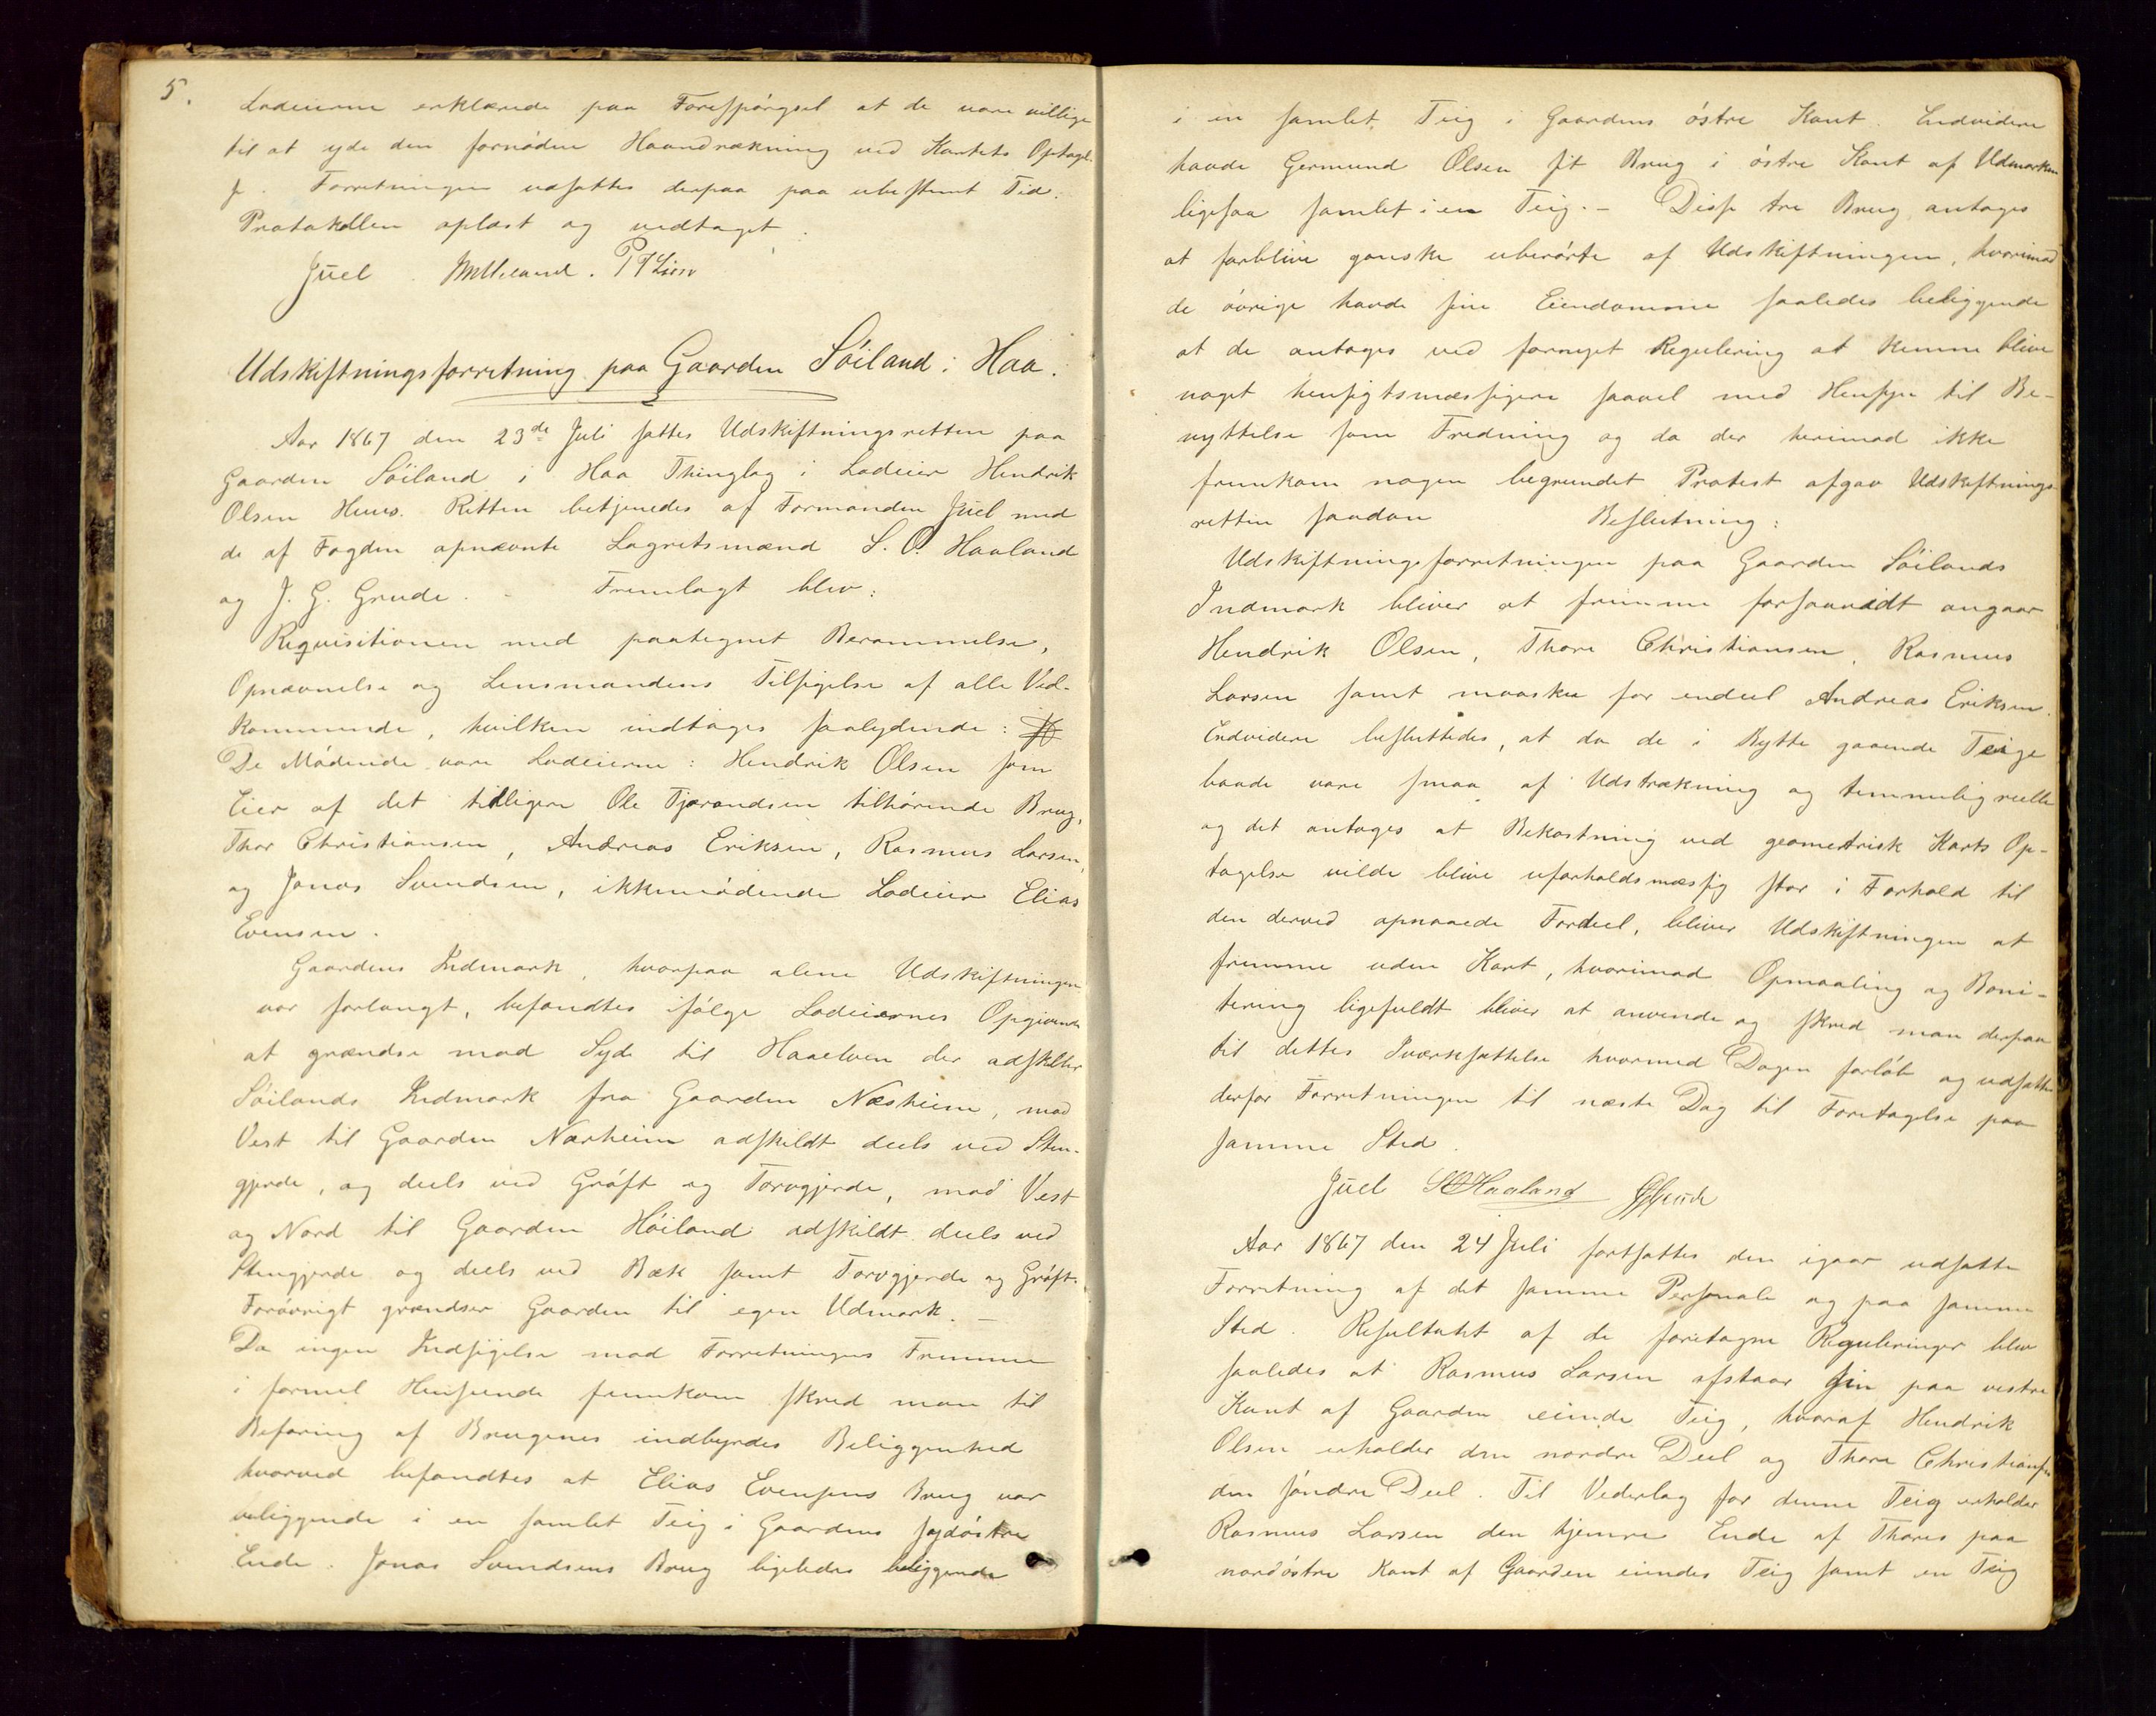 5.
Lodeierne erklærede paa Forespörgsel at de vare villige
til at yde den fornödne Haandrækning ved Kartets Optagel-
se. Forretningen udsattes derpaa paa ubestemt Tid.
Protokollen oplæst og vedtaget.
Juel.
Udskiftningsforretning paa Gaarden Söiland i Haa.
Aar 1867 den 23de Juli sattes Udskiftningsretten paa
Gaarden Söiland i Haa Thinglag i Lodeier Hendrik
Olsen Huus. Retten betjenedes af Formanden Juel med
de af Fogden opnævnte Lagretsmænd S. O. Haaland
og J. G. Grude. - Fremlagt blev:
Requisitionen med paategnet Berammelse,
Opnævnelse og Lensmandens Tilsigelse af alle Ved-
kommende, hvilken indtages saalydende:
De Mödende vare Lodeierne: Hendrik Olsen som
Eier af det tidligere Ole Tjørandsen tilhörende Brug,
Thor Christiansen, Andreas Eriksen, Rasmus Larsen,
og Jonas Svendsen, ikkemödende Lodeier Elias
Evensen.
Gaardens Indmark, hvorpaa alene Udskiftningen
var forlangt, befandtes ifölge Lodeiernes Opgivende
at grændse mod Syd til Haaelven der adskiller
Söilands Indmark fra Gaarden Næsheim, mod
Vest til Gaarden Nærheim adskildt deels ved Steen-
gjerde, og deels ved Gröft og Torvgjerde, mod Vest
og Nord til Gaarden Höiland adskildt deels ved
Steengjerde og deels ved Bæk samt Torvgjerde og Gröft.
Forövrigt grændser Gaarden til egen Udmark. -
Da ingen Indsigelse mod Forretningens Fremme
i formel Henseende fremkom skred man til
Befaring af Brugenes indbyrdes Beliggenhed
hvorved befandtes at Elias Evensens Brug var
beliggende i en samlet Teig i Gaardens sydöstre
Ende. Jonas Svendsens Brug ligeledes beliggende
i en samlet Teig i Gaardens östre Kant. Endvidere
havde Germund Olsen sit Brug i östre Kant af Udmarken
ligesaa samlet i en Teig. - Disse tre Brug antages
at forblive ganske uberörte af Udskiftningen, hvorimod
de övrige havde sine Eiendomme saaledes beliggende
at de antages ved fornyet Regulering at kunne blive
noget hensigtsmæssigere saavel med Hensyn til Be-
nyttelse som Fredning og da der herimod ikke
fremkom nogen begrundet Protest afgav Udskiftnings-
retten saadan Beslutning:
Udskiftningsforretningen paa Gaarden Söilands
Indmark bliver at fremme forsaavidt angaar
Hendrik Olsen, Thore Christiansen, Rasmus
Larsen samt maaskee for endeel Andreas Eriksen.
Endvidere besluttedes, at da de i Bytte gaaende Teige
baade vare smaa af Udstrækning og temmelig reelle
og det antages at Bekostning ved geometrisk Karts Op-
tagelse vilde blive uforholdsmæssig stor i Forhold til
den derved opnaaede Fordeel, bliver Udskiftningen at
fremme uden Kart, hvorimod Opmaaling og Boni-
tering ligefuldt bliver at anvende og skred man derpaa
til dettes Iværksættelse hvormed Dagen forlöb og udsattes
derfor Forretningen til næste Dag til Foretagelse paa
samme Sted.
Juel SOHaaland JGGrude
Aar 1867 den 24 Juli fortsattes den igaar udsatte
Forretning af det samme Personale og paa samme
Sted. Resultatet af de foretagne Reguleringer blev
saaledes at Rasmus Larsen afstaar sin paa vestre
Kant af Gaarden eiende Teig, hvoraf Hendrik
Olsen erholder den nordre Deel og Thore Christiansen
den söndre Deel. Til Vederlag for denne Teig erholder
Rasmus Larsen den hjemre Ende af Thores paa
nordöstre Kant af Gaarden eiendes Teig samt en Teig